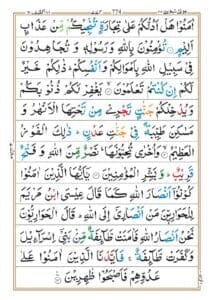 اٰمَنُوْا هَلْ اَدُلُّكُمْ عَلٰى تِجَارَةٍ تُنْجِيْكُمْ مِّنْ عَذَابٍ
اَلِيْمٍ ۝ تُؤْمِنُوْنَ بِاللّٰهِ وَرَسُوْلِهٖ وَتُجَاهِدُوْنَ
فِيْ سَبِيْلِ اللّٰهِ بِاَمْوَالِكُمْ وَاَنْفُسِكُمْ ؕ ذٰلِكُمْ خَيْرٌ
لَّكُمْ اِنْ كُنْتُمْ تَعْلَمُوْنَ ۝ يَغْفِرْ لَكُمْ ذُنُوْبَكُمْ
وَيُدْخِلْكُمْ جَنّٰتٍ تَجْرِيْ مِنْ تَحْتِهَا الْاَنْهٰرُ وَ
مَسٰكِنَ طَيِّبَةً فِيْ جَنّٰتِ عَدْنٍ ؕ ذٰلِكَ الْفَوْزُ
الْعَظِيْمُ ۝ وَاُخْرٰى تُحِبُّوْنَهَا ؕ نَصْرٌ مِّنَ اللّٰهِ وَفَتْحٌ
قَرِيْبٌ ؕ وَبَشِّرِ الْمُؤْمِنِيْنَ ۝ يٰۤاَيُّهَا الَّذِيْنَ اٰمَنُوْا
كُوْنُوْۤا اَنْصَارَ اللّٰهِ كَمَا قَالَ عِيْسَى ابْنُ مَرْيَمَ
لِلْحَوَارِيّٖنَ مَنْ اَنْصَارِيْۤ اِلَى اللّٰهِ ؕ قَالَ الْحَوَارِيُّوْنَ
نَحْنُ اَنْصَارُ اللّٰهِ فَاٰمَنَتْ طَّآئِفَةٌ مِّنْۢ بَنِيْۤ اِسْرَآءِيْلَ
وَكَفَرَتْ طَّآئِفَةٌ ۚ فَاَيَّدْنَا الَّذِيْنَ اٰمَنُوْا عَلٰى
عَدُوِّهِمْ فَاَصْبَحُوْا ظٰهِرِيْنَ ۝